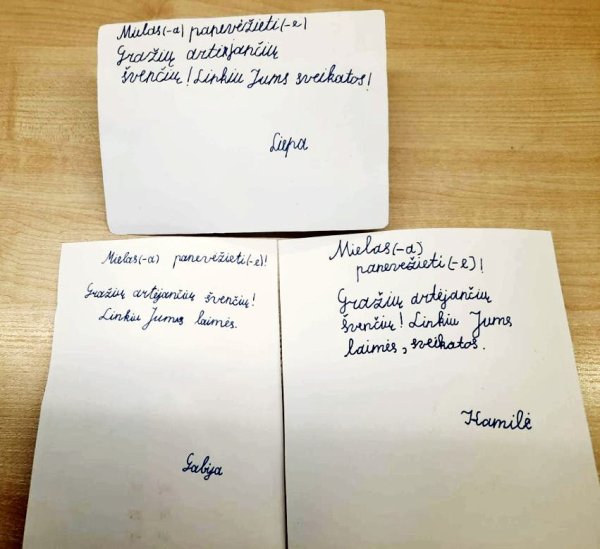 Mielas(-a) panevėžieti(-e)
Gražių artėjančių
švenčių! Linkiu Jums sveikatos!
Liepa
Mielas(-a) panevėžieti(-e)!
Gražių artėjančių švenčių!
Linkiu Jums laimės.
Gabija
Mielas(-a)
panevėžieti(-e)!
Gražių artėjančių
švenčių! Linkiu Jums
laimės, sveikatos.
Kamilė